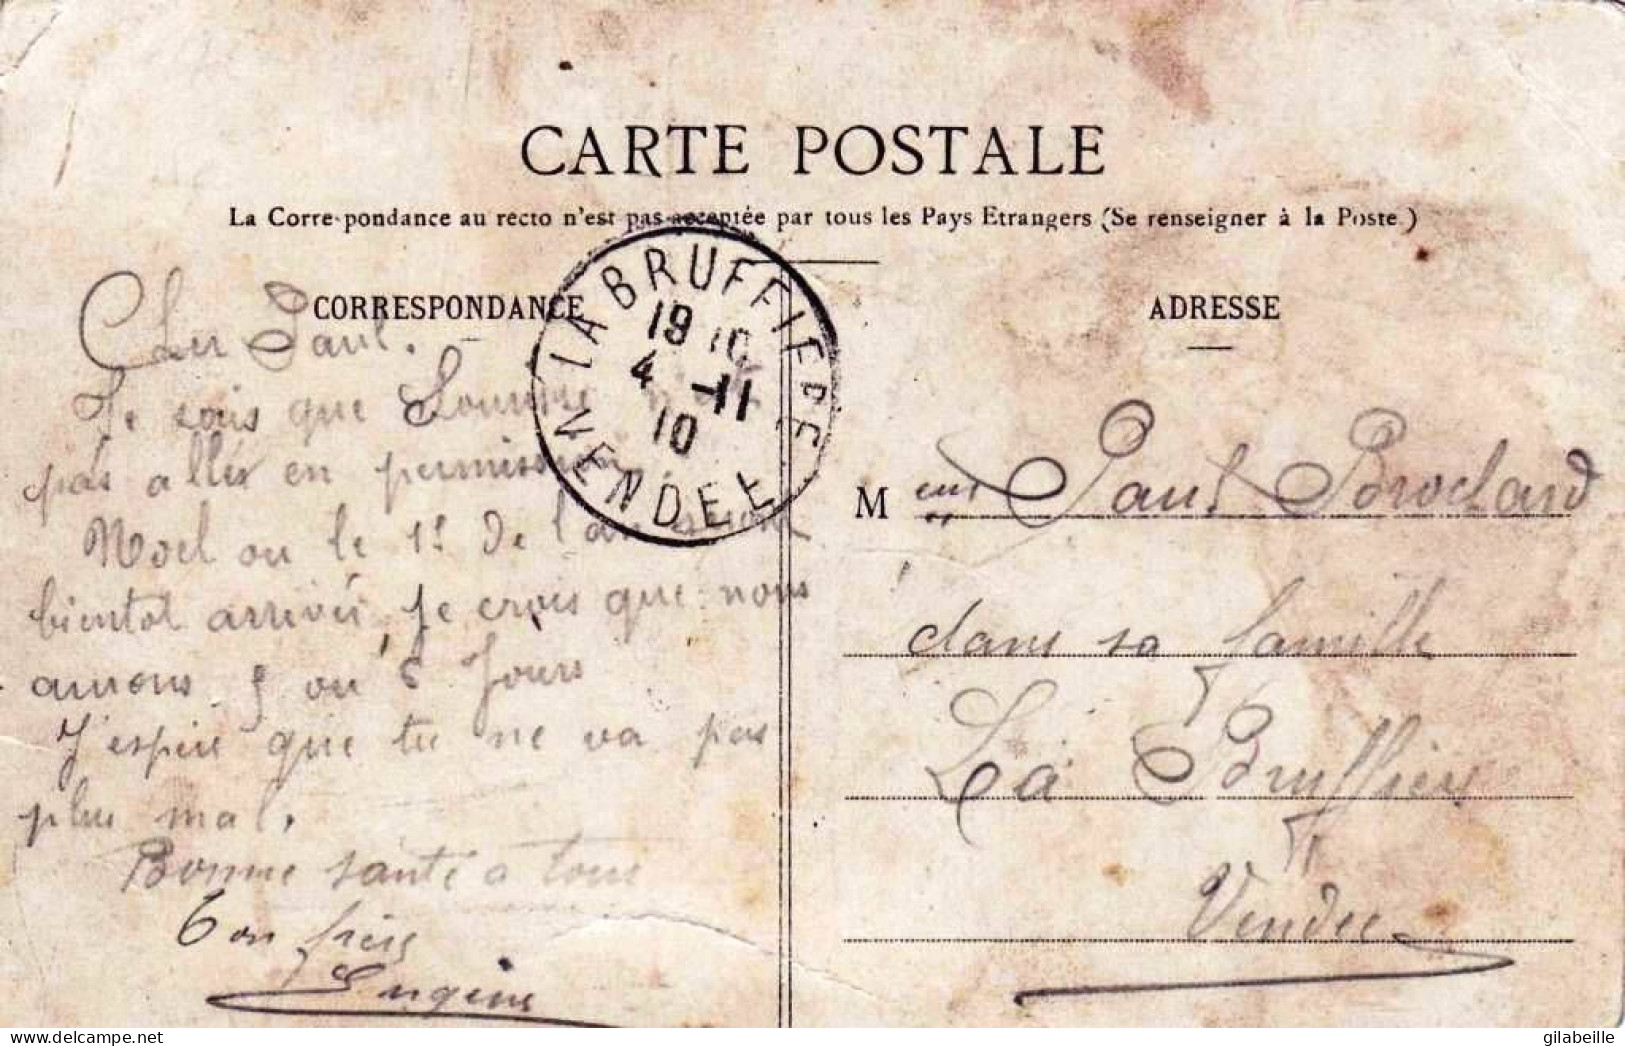 CARTE POSTALE
La Correspondance au recto n'est pas acceptée par tous les Pays Etrangers (Se renseigner à la Poste.)
CORRESPONDANCE
ADRESSE
LA BRUFFIERE
19 10
4 -11
10
VENDEE
Cher Paul.
Je sais que
pas allér en permission.
Noel ou le 1r de l'an
bientot arrivés, Je crois que nous
aurons 5 ou 6 Jours
J'espère que tu ne va pas
plus mal.
Bonne santé a tous
Ton frère
Eugène
M eur Paul Brochard
dans sa famille
La Bruffière
Vendée
gilabeille